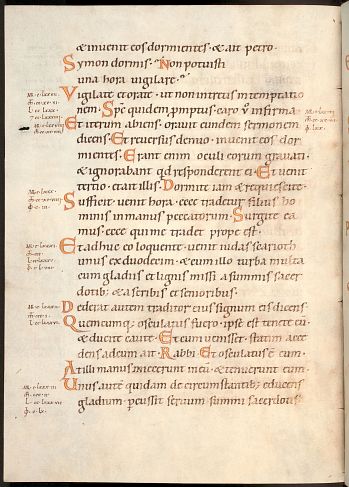 & invenit eos dormientes · & ait petro ·
Symon dormis · Non potuisti
una hora vigilare ·
Vigilate et orate · ut non intretis in temptatio
nem · Sps quidem promptus · caro vo infirma ·
Et iterum abiens · oravit eundem sermonem
dicens · Et reversus denuo · invenit eos dor
mientes · Erant enim oculi eorum gravati ·
& ignorabant qd responderent ei · Et venit
tertio · et ait illis · Dormite iam & requiescite ·
Sufficit · venit hora · ecce tradetur filius ho
minis in manus peccatorum · Surgite ea
mus · ecce qui me tradet prope est ·
Et adhuc eo loquente · venit iudas scarioth
unus ex duodecim · & cum illo turba multa
cum gladiis et lignis missi a summis sacer
dotib; · & a scribis et senioribus ·
Dederat autem traditor eius signum eis dicens ·
Quencumq; osculatus fuero · ipse est tenete eu
& ducite caute · Et cum venisset · statim acce
dens ad eum ait · Rabbi · Et osculatus e eum ·
At illi manus iniecerunt in eu · & tenuerunt eum
Unus aute quidam de circumstantib; · educens
gladium · percussit servum summi sacerdotis